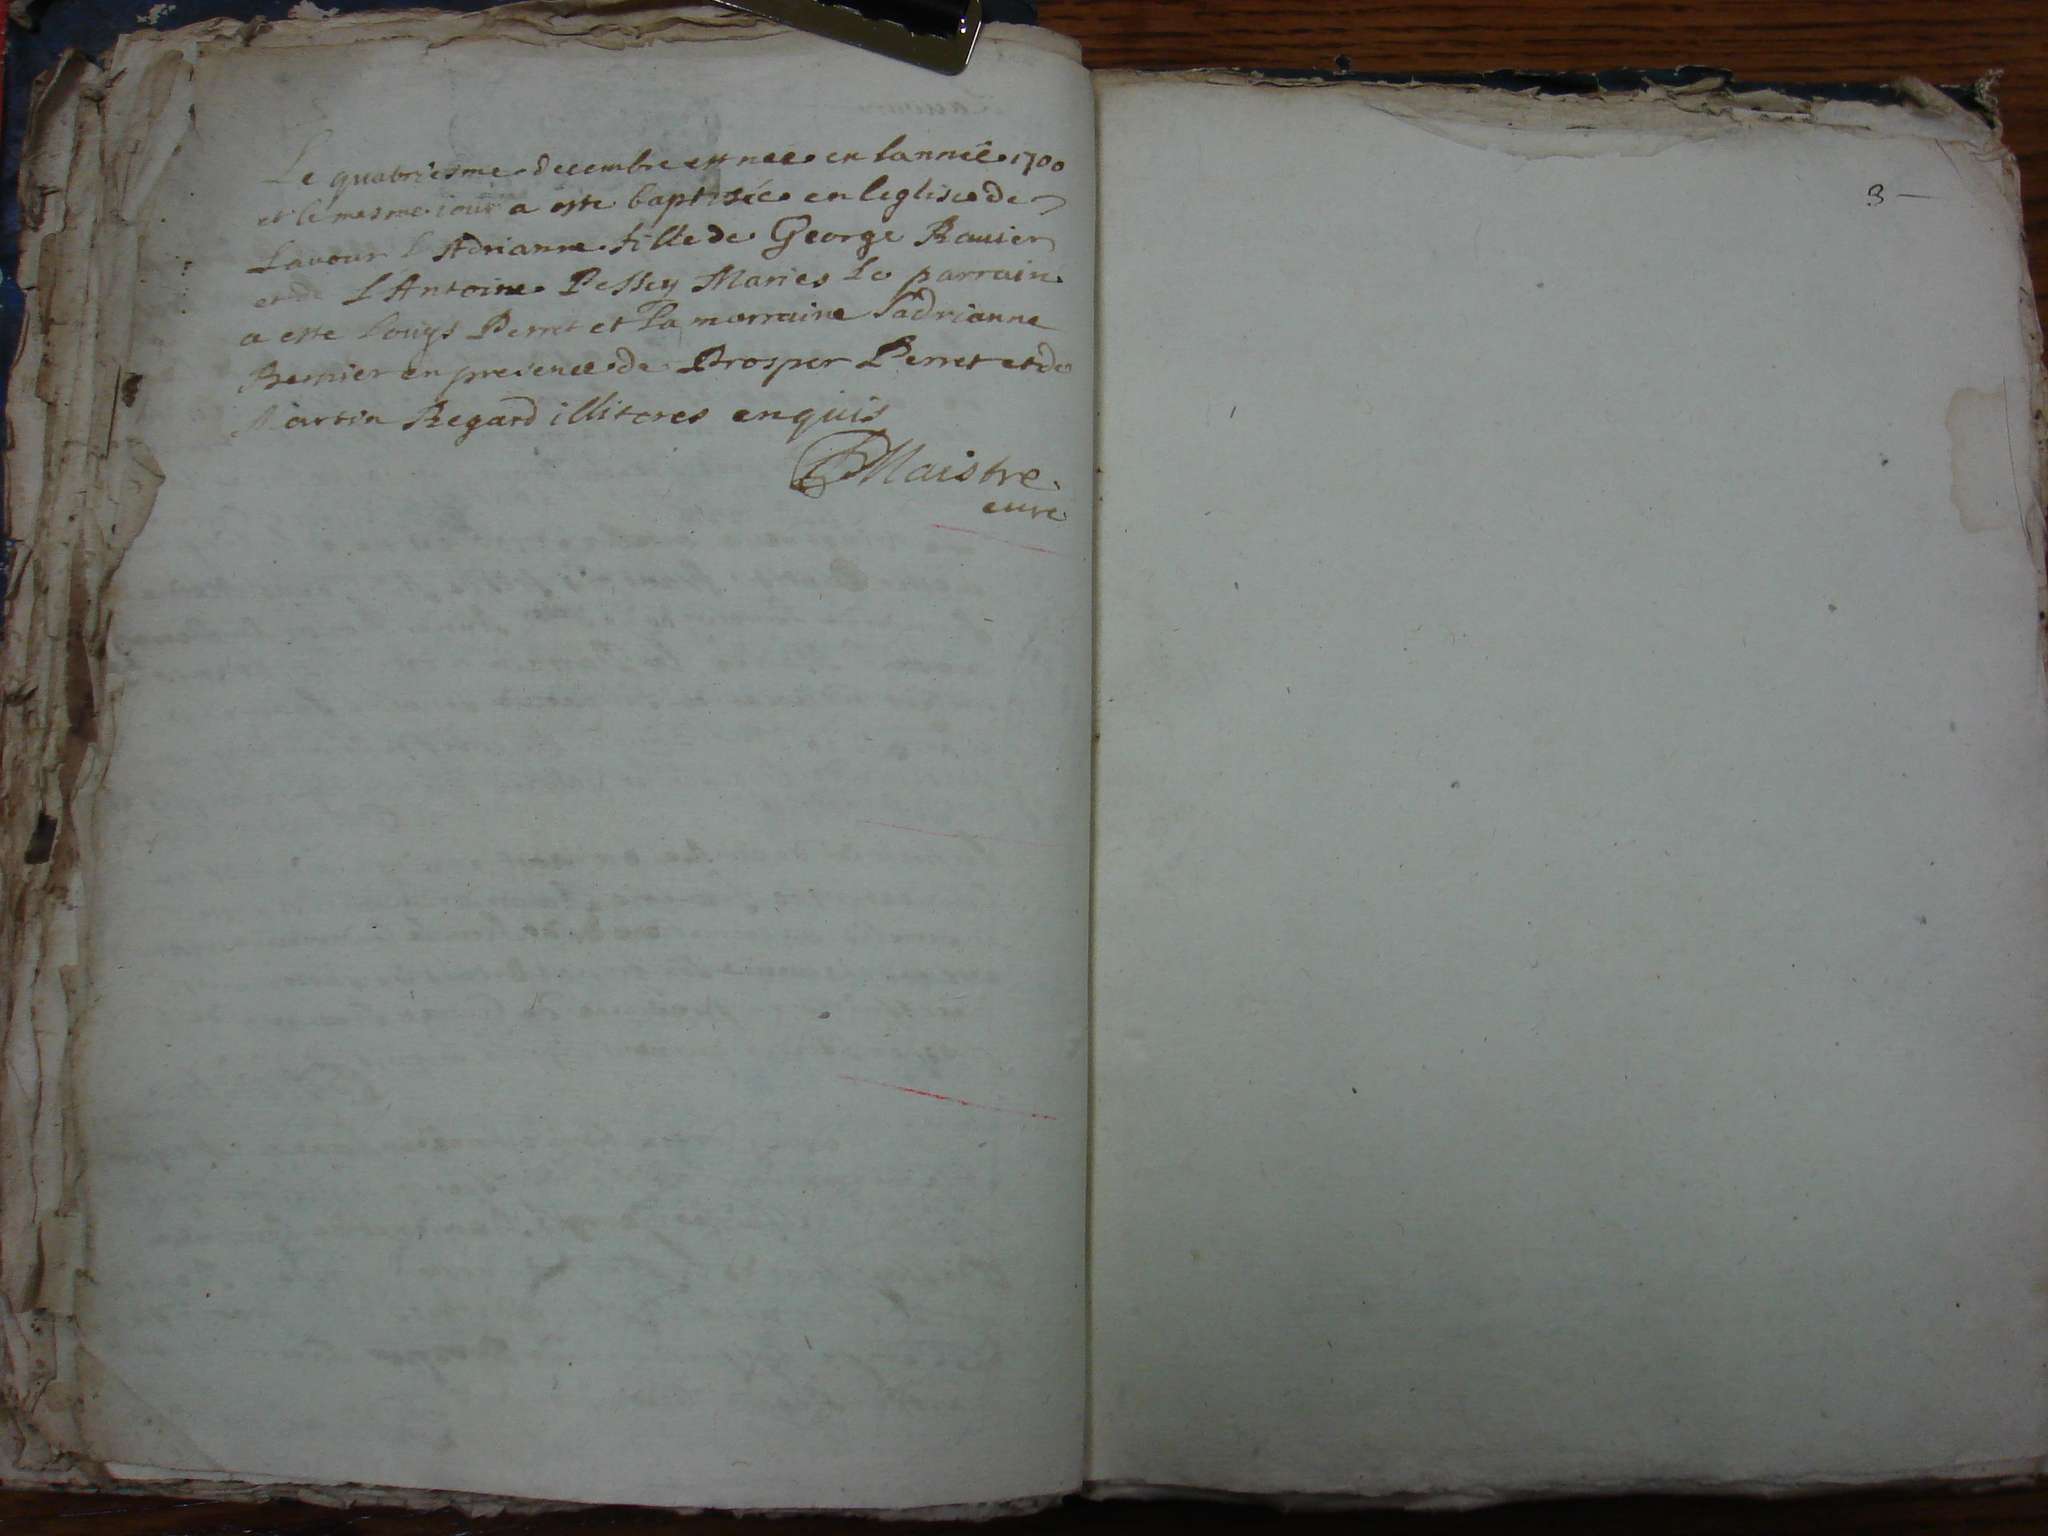 Le quatriesme decembre est nee en lannee 1700
et le mesme jour a este baptisée en leglise de
Lavour l Adrianne fille de George Ravier
et de L'Antoine Pessey Maries Le parrain
a este Louys Perret et La marraine l'adrianne
Bernier en presence de Prosper Perret et de
Martin Regard illiteres enquis
Maistre
cure
3 —